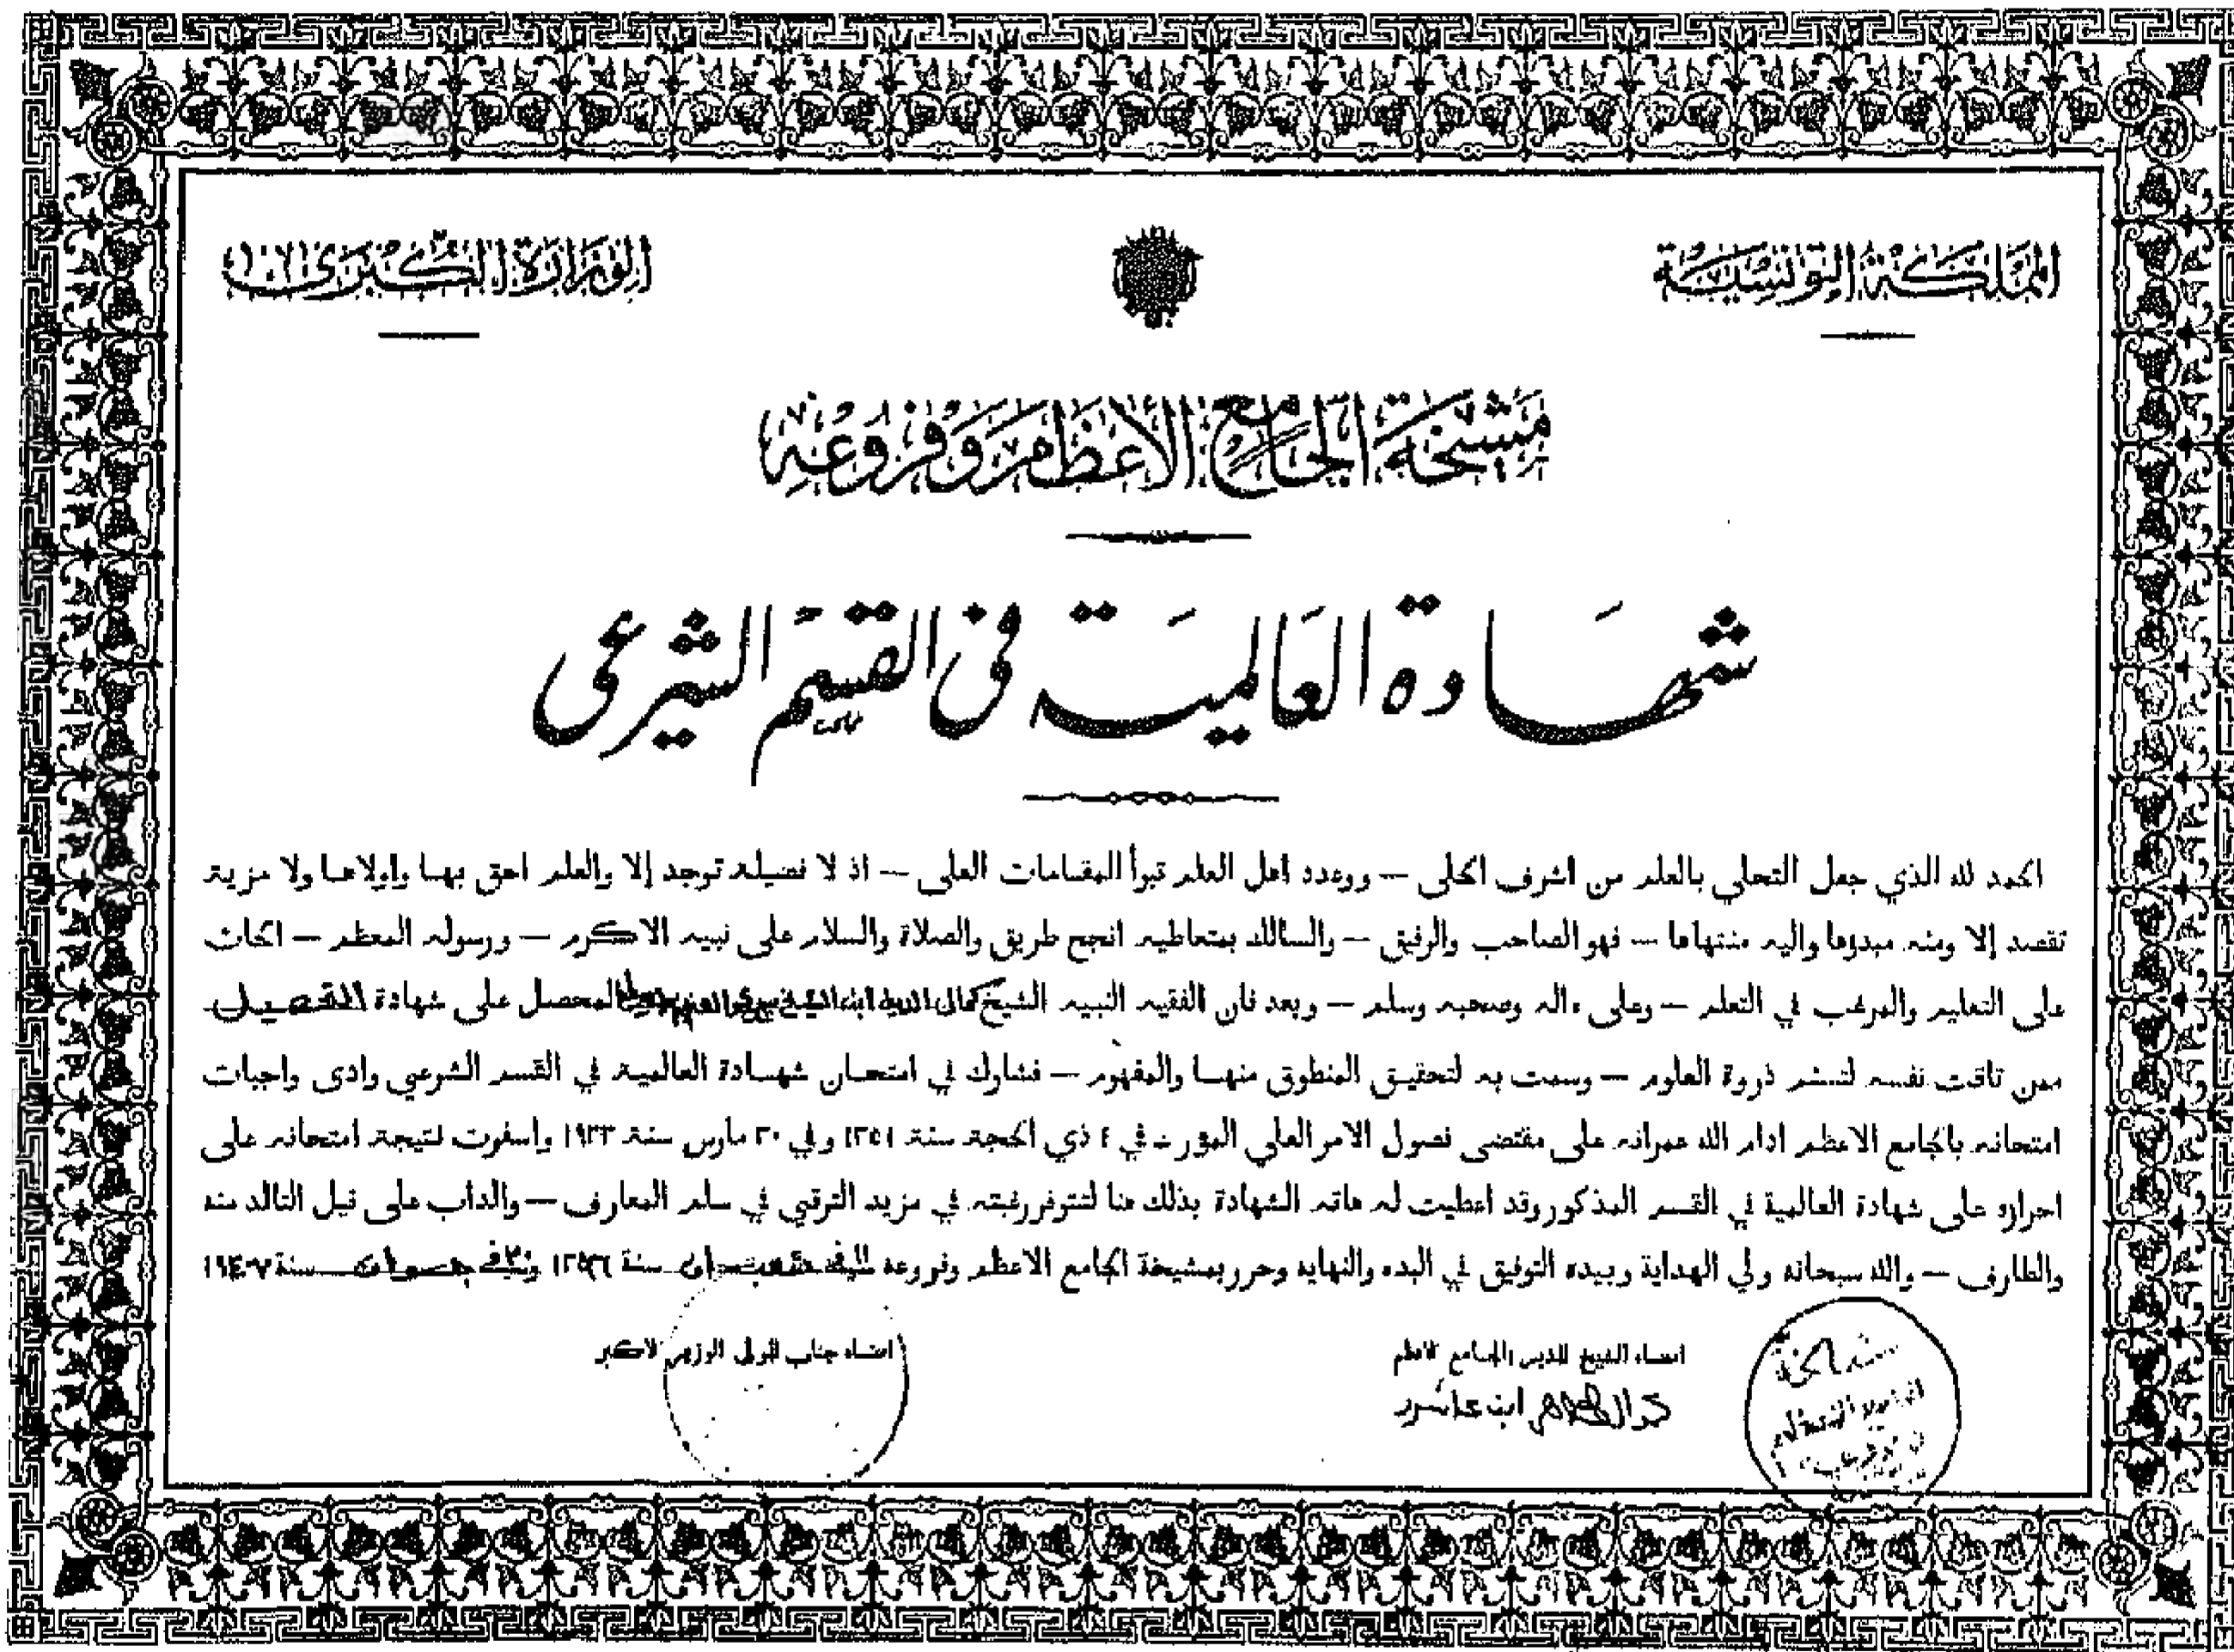 المملكة التونسية
الوزارة الكبرى
مشيخة الجامع الأعظم وفروعه
شهادة العالمية في القسم الشرعي
الحمد لله الذي جعل التحلي بالعلم من اشرف الحلى — ووعدد اهل العلم تبوأ المقامات العلى — اذ لا فضيلة توجد إلا والعلم احق بها واولاها ولا مزية
تقصد إلا ومنه مبدؤها واليه منتهاها — فهو الصاحب والرفيق — والسالك بمتعاطيه انجح طريق والصلاة والسلام على نبيه الاكرم — ورسوله المعظم — الحاث
على التعليم والمرغب في التعلم — وعلى ءاله وصحبه وسلم — وبعد فان الفقيه النبيه الشيخ كمال الدين ابن الشيخ المحصل على شهادة التحصيل
ممن تاقت نفسه لتسنم ذروة العلوم — وسمت به لتحقيق المنطوق منها والمفهوم — فشارك في امتحان شهادة العالمية في القسم الشرعي وادى واجبات
امتحانه بالجامع الاعظم ادام الله عمرانه على مقتضى فصول الامر العلي المؤرخ في ٤ ذي الحجة سنة ١٣٥١ وفي ٣٠ مارس سنة ١٩٣٣ واسفرت نتيجة امتحانه على
احرازه على شهادة العالمية في القسم المذكور وقد اعطيت له هاته الشهادة بذلك هنا لتتوفر رغبته في مزيد الترقي في سلم المعارف — والداب على نيل التالد منه
والطارف — والله سبحانه ولي الهداية وبيده التوفيق في البدء والنهاية وحرر بمشيخة الجامع الاعظم وفروعه في شعبان سنة وفي جوان سنة
امضاء الشيخ المدير الجامع الاعظم
امضاء جناب المولى الوزير الاكبر
الطاهر ابن عاشور